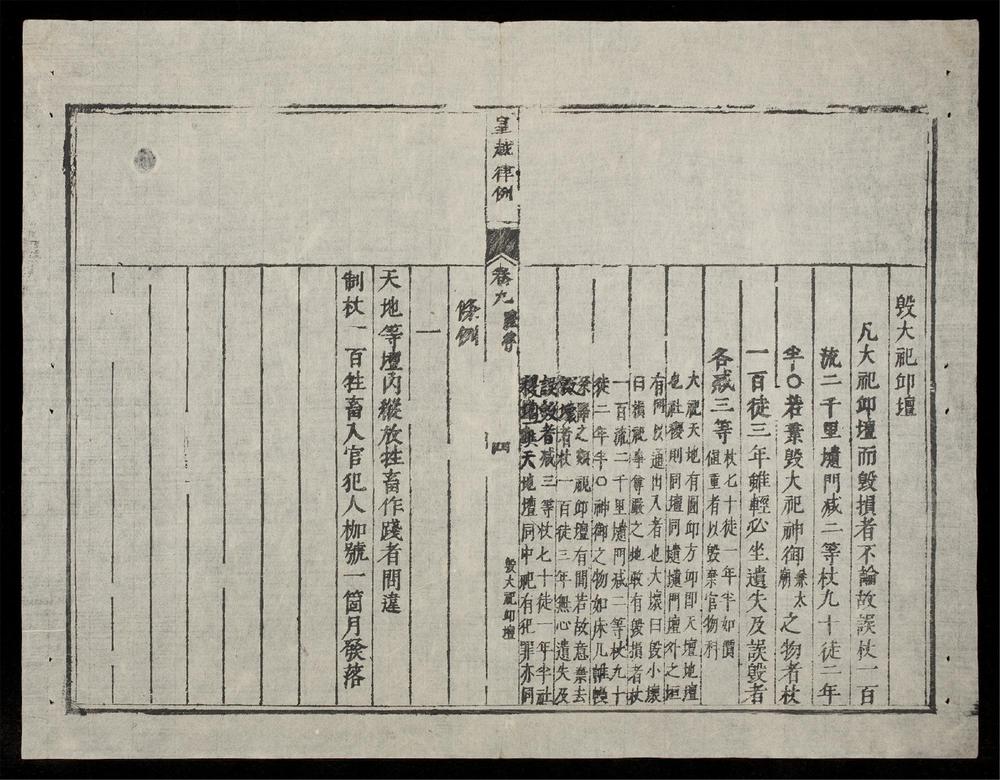 毁大祀卭壇
凡大祀卭壇而毁損者不論故誤杖一百
流二千里壝門减二等杖九十徒二年
半○若棄毁大祀神御兼太廟之物者杖
一百徒三年雖輕必坐遺失及誤毁者
各减三等杖七十徒一年半如價值重者以毁棄官物科
大祀天地有圜卭方卭即天壇地壇
也社稷則同壇同壝壝門壇外之垣
有門以通出入者也大壞曰毁小壞
曰損祀事尊嚴之地敢有毁損者杖
一百流二千里壝門减二等杖九十
徒二年半○神御之物如床几帷幔
祭器之類視卭壇有間若故意棄去
毁壞者杖一百徒三年無心遺失及
誤毁者减三等杖七十徒一年半社
稷壇與天地壇同中祀有犯罪亦同
皇越律例
卷九 禮律
四
毁大祀卭壇
條例
一
天地等壇内縱放牲畜作踐者問違
制杖一百牲畜入官犯人枷號一箇月發落